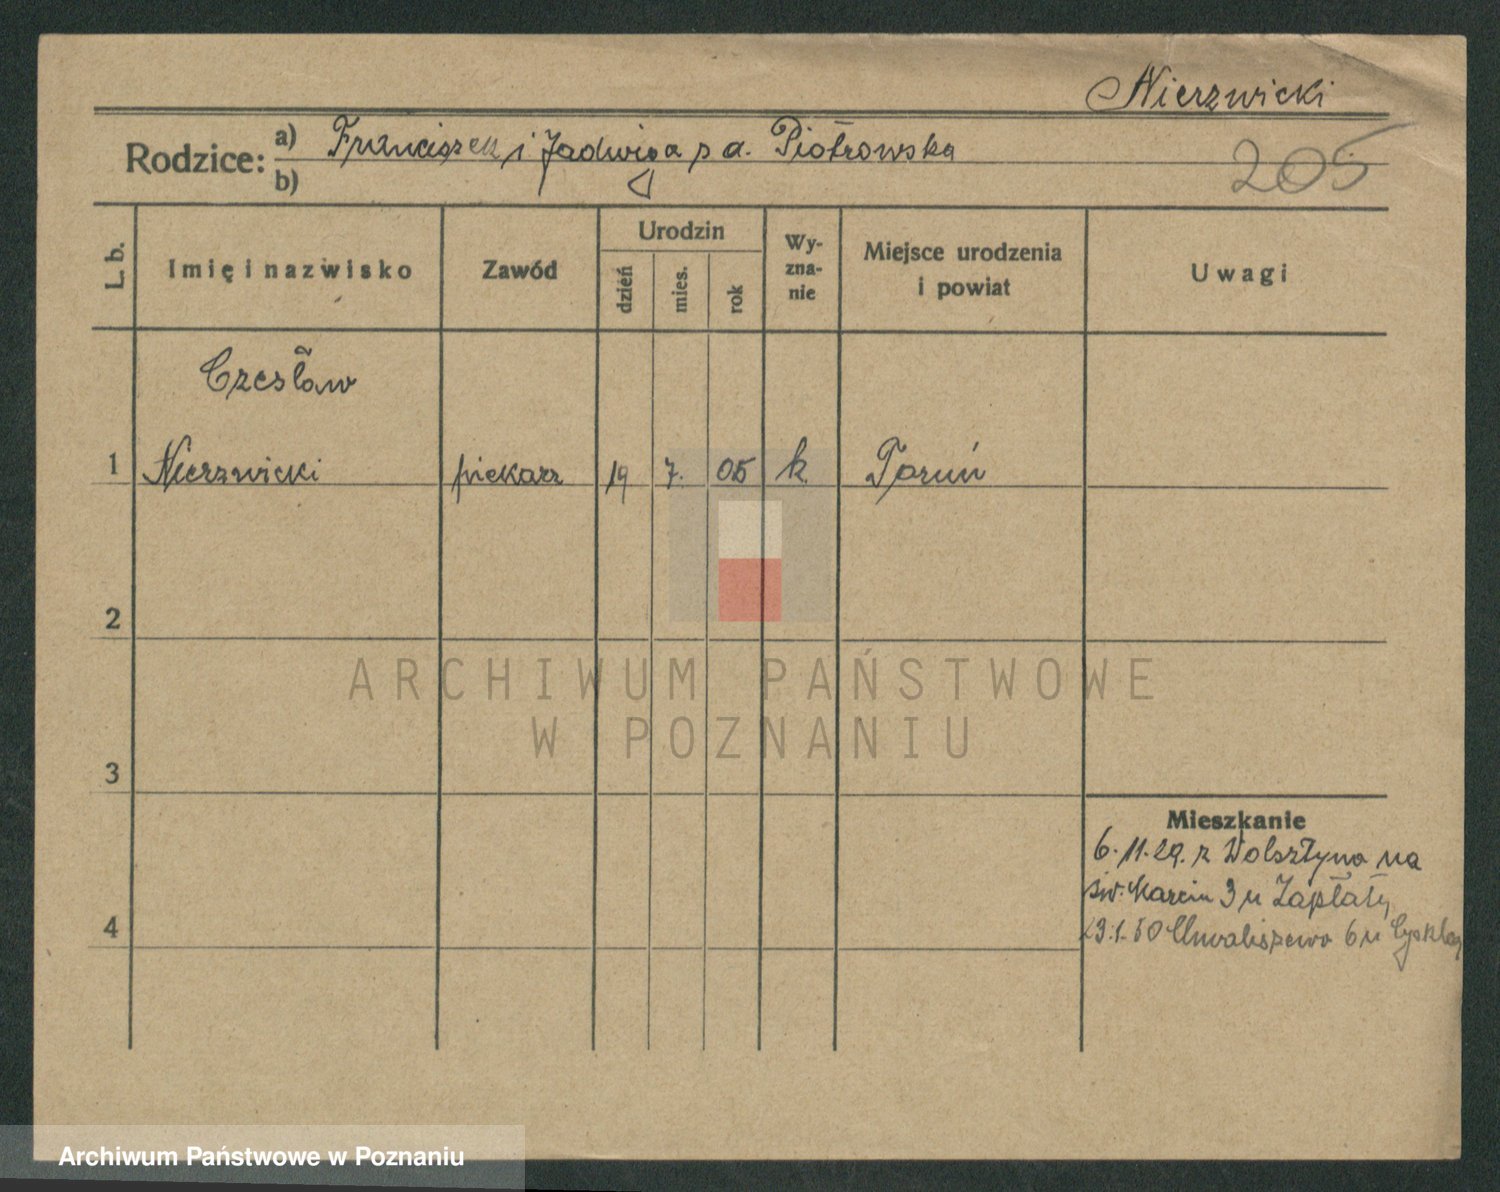 Nierzwicki
Rodzice: a) Franciszek i Jadwiga z d. Piotrowska
b)
205
L. b.
Imię i nazwisko
Zawód
Urodzin
dzień
mies.
rok
Wy-
zna-
nie
Miejsce urodzenia
i powiat
Uwagi
Czesław
1 Nierzwicki piekarz 19 7. 05 k Toruń
2
3
4
Mieszkanie
6.11.29. z Wolsztyna na
św. Marcin 3 u Zapłaty
23.1.30 Chwaliszewo 6 u
ARCHIWUM PAŃSTWOWE
W POZNANIU
Archiwum Państwowe w Poznaniu